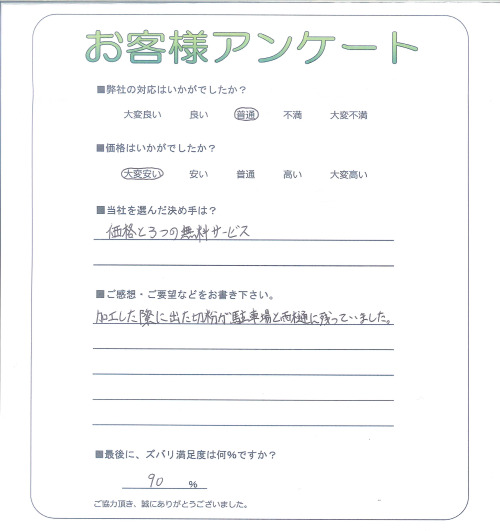 お客様アンケート
■弊社の対応はいかがでしたか？
大変良い 良い 普通 不満 大変不満
■価格はいかがでしたか？
大変安い 安い 普通 高い 大変高い
■当社を選んだ決め手は？
価格と3つの無料サービス
■ご感想・ご要望などをお書き下さい。
加工した際に出た切粉が駐車場と雨樋に残っていました。
■最後に、ズバリ満足度は何%ですか？
90 %
ご協力頂き、誠にありがとうございました。